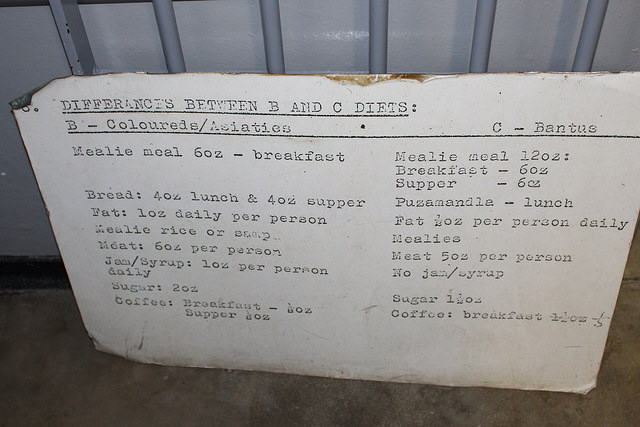 DIFFERANCES BETWEEN B AND C DIETS:
B - Coloureds/Asiatics
C - Bantus
Mealie meal 6oz - breakfast
Mealie meal 12oz:
Breakfast - 6oz
Supper - 6oz
Bread: 4oz lunch & 4oz supper
Puzamandla - lunch
Fat: 1oz daily per person
Fat ½oz per person daily
Mealie rice or samp
Mealies
Meat: 6oz per person
Meat 5oz per person
Jam/Syrup: 1oz per person
daily
No jam/syrup
Sugar: 2oz
Sugar 1½oz
Coffee: Breakfast -
Supper
Coffee: breakfast